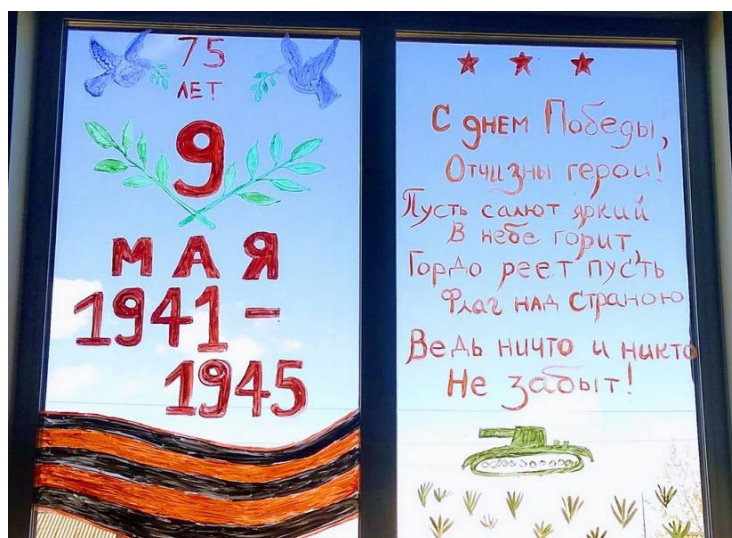 75
ЛЕТ
9
МАЯ
1941-
1945
С днем Победы,
Отчизны герои!
Пусть салют яркий
В небе горит,
Гордо реет пусть
Флаг над страною
Ведь ничто и никто
Не забыт!